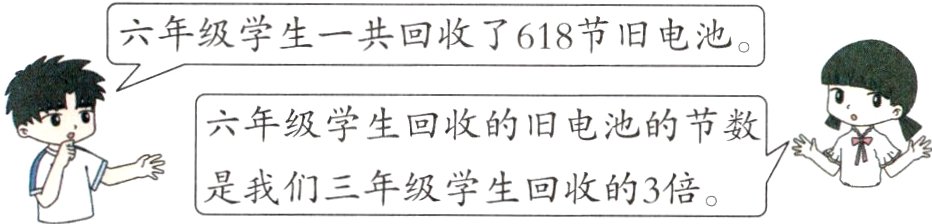 六年级学生一共回收了618节旧电池。
六年级学生回收的旧电池的节数
是我们三年级学生回收的3倍。